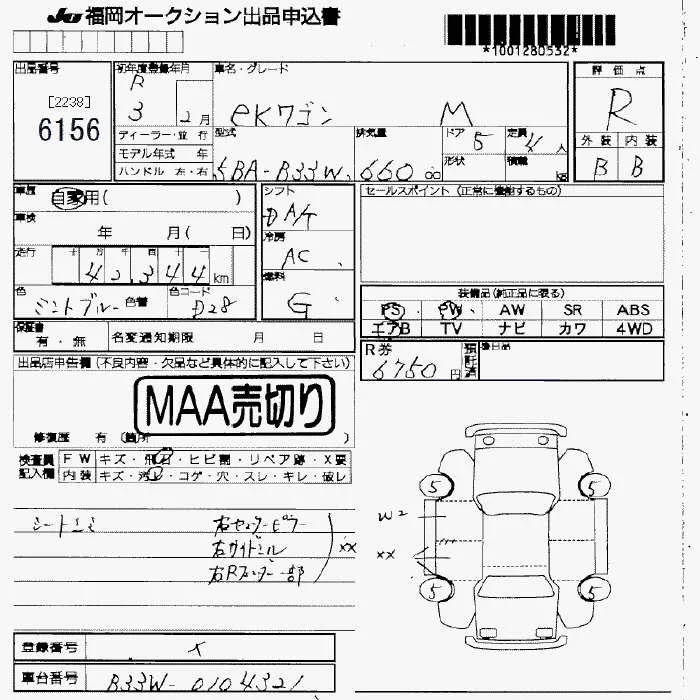 JU 福岡オークション出品申込書
*1001280532*
出品番号 初年度登録年月 車名・グレード 評価点
[2238]
6156
R 3 2月 eKワゴン M R
ディーラー・並行 型式 排気量 ドア 5 定員 4人 外装 内装
モデル年式 年 5BA-B33W 660 cc 形状 積載 kg B B
ハンドル 左・右
車歴 自家用( ) シフト セールスポイント (正常に機能するもの)
DA/T
車検 年 月( 日) 冷房
AC
走行 十 万 千 百 十 一 燃料
42,344km G
色 ミントブルー 色替 色コード D28
装備品(純正品に限る)
PS PW AW SR ABS
エアB TV ナビ カワ 4WD
保証書 有・無 名変通知期限 月 日
R券 6750円 預託済 後日品
出品店申告欄 (不良内容・欠品など具体的に記入して下さい)
MAA売切り
修復歴 有 (箇所 )
検査員記入欄 FW キズ・飛石・ヒビ割・リペア跡・X要
内装 キズ・汚れ・コゲ・穴・スレ・キレ・破レ
シートシミ 右センターピラー
右サイドシル XX
右Rフェンダー一部
5 5
W2
XX
5 5
登録番号 X
車台番号 B33W-0104321